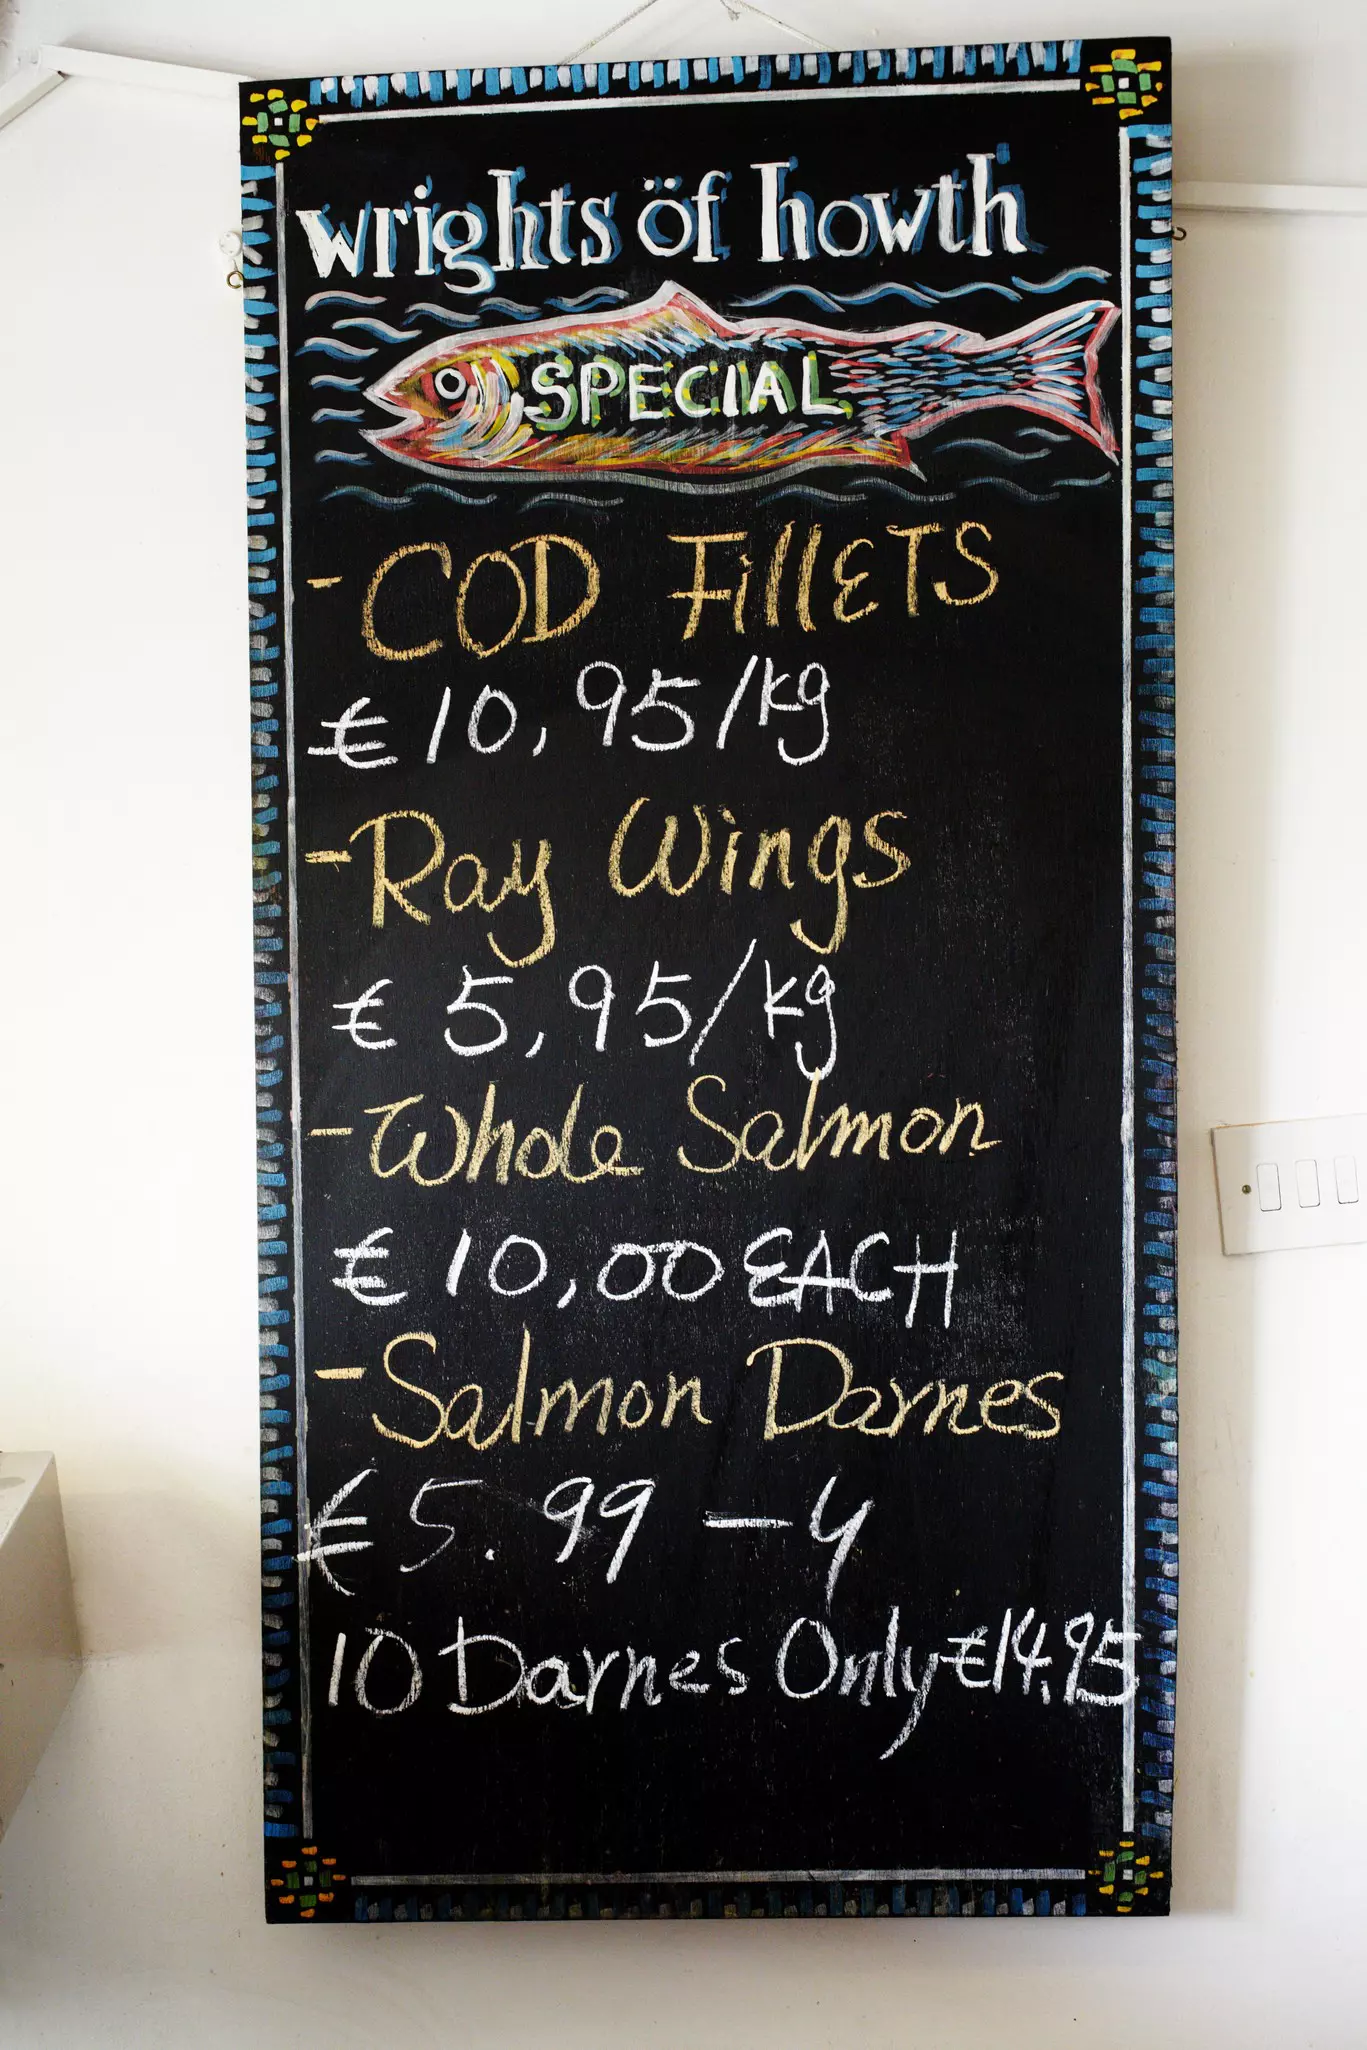 wrights öf howth
SPECIAL
- COD FillETS
€ 10,95/kg
- Ray Wings
€ 5,95/kg
- Whole Salmon
€ 10,00 EACH
- Salmon Darnes
€ 5.99 - 4
10 Darnes Only €14.95